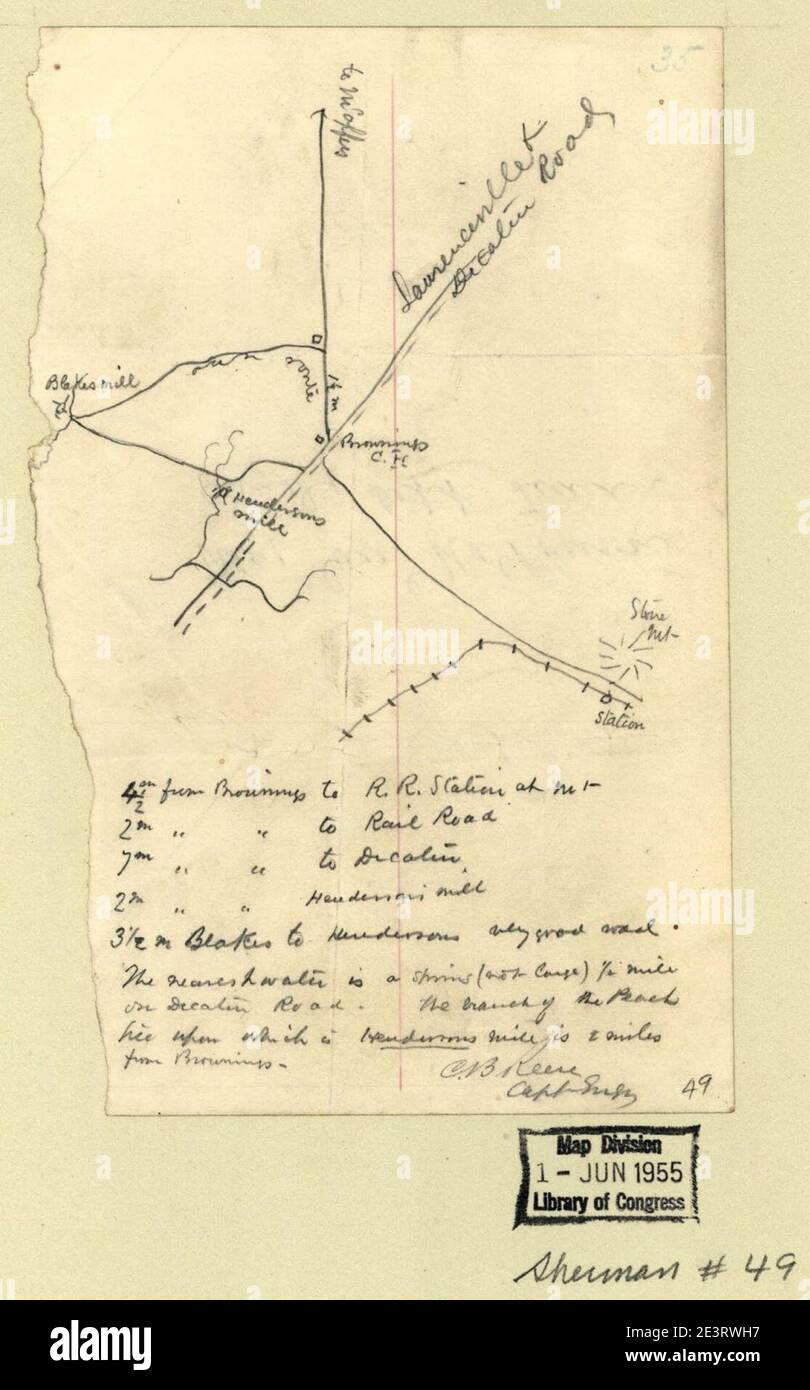 35
to McAffees
Lawrenceville &
Decatur Road
Blakes mill
our route
1½ m
Brownings
C. H
Hendersons
mill
Stone
Mt
Station
4½ m from Brownings to R. R. Station at Mt
2m " " to Rail Road
7m " " to Decatur
2m " " Hendersons mill
3½ m Blakes to Hendersons very good road.
The nearest water is a spring (not large) ½ mile
on Decatur Road. The branch of the Peach
tree upon which is Hendersons mill is 2 miles
from Brownings-
C. B Reese
Capt Engr
49
Map Division
1 - JUN 1955
Library of Congress
Sherman # 49
alamy
Image ID: 2E3RWH7
www.alamy.com